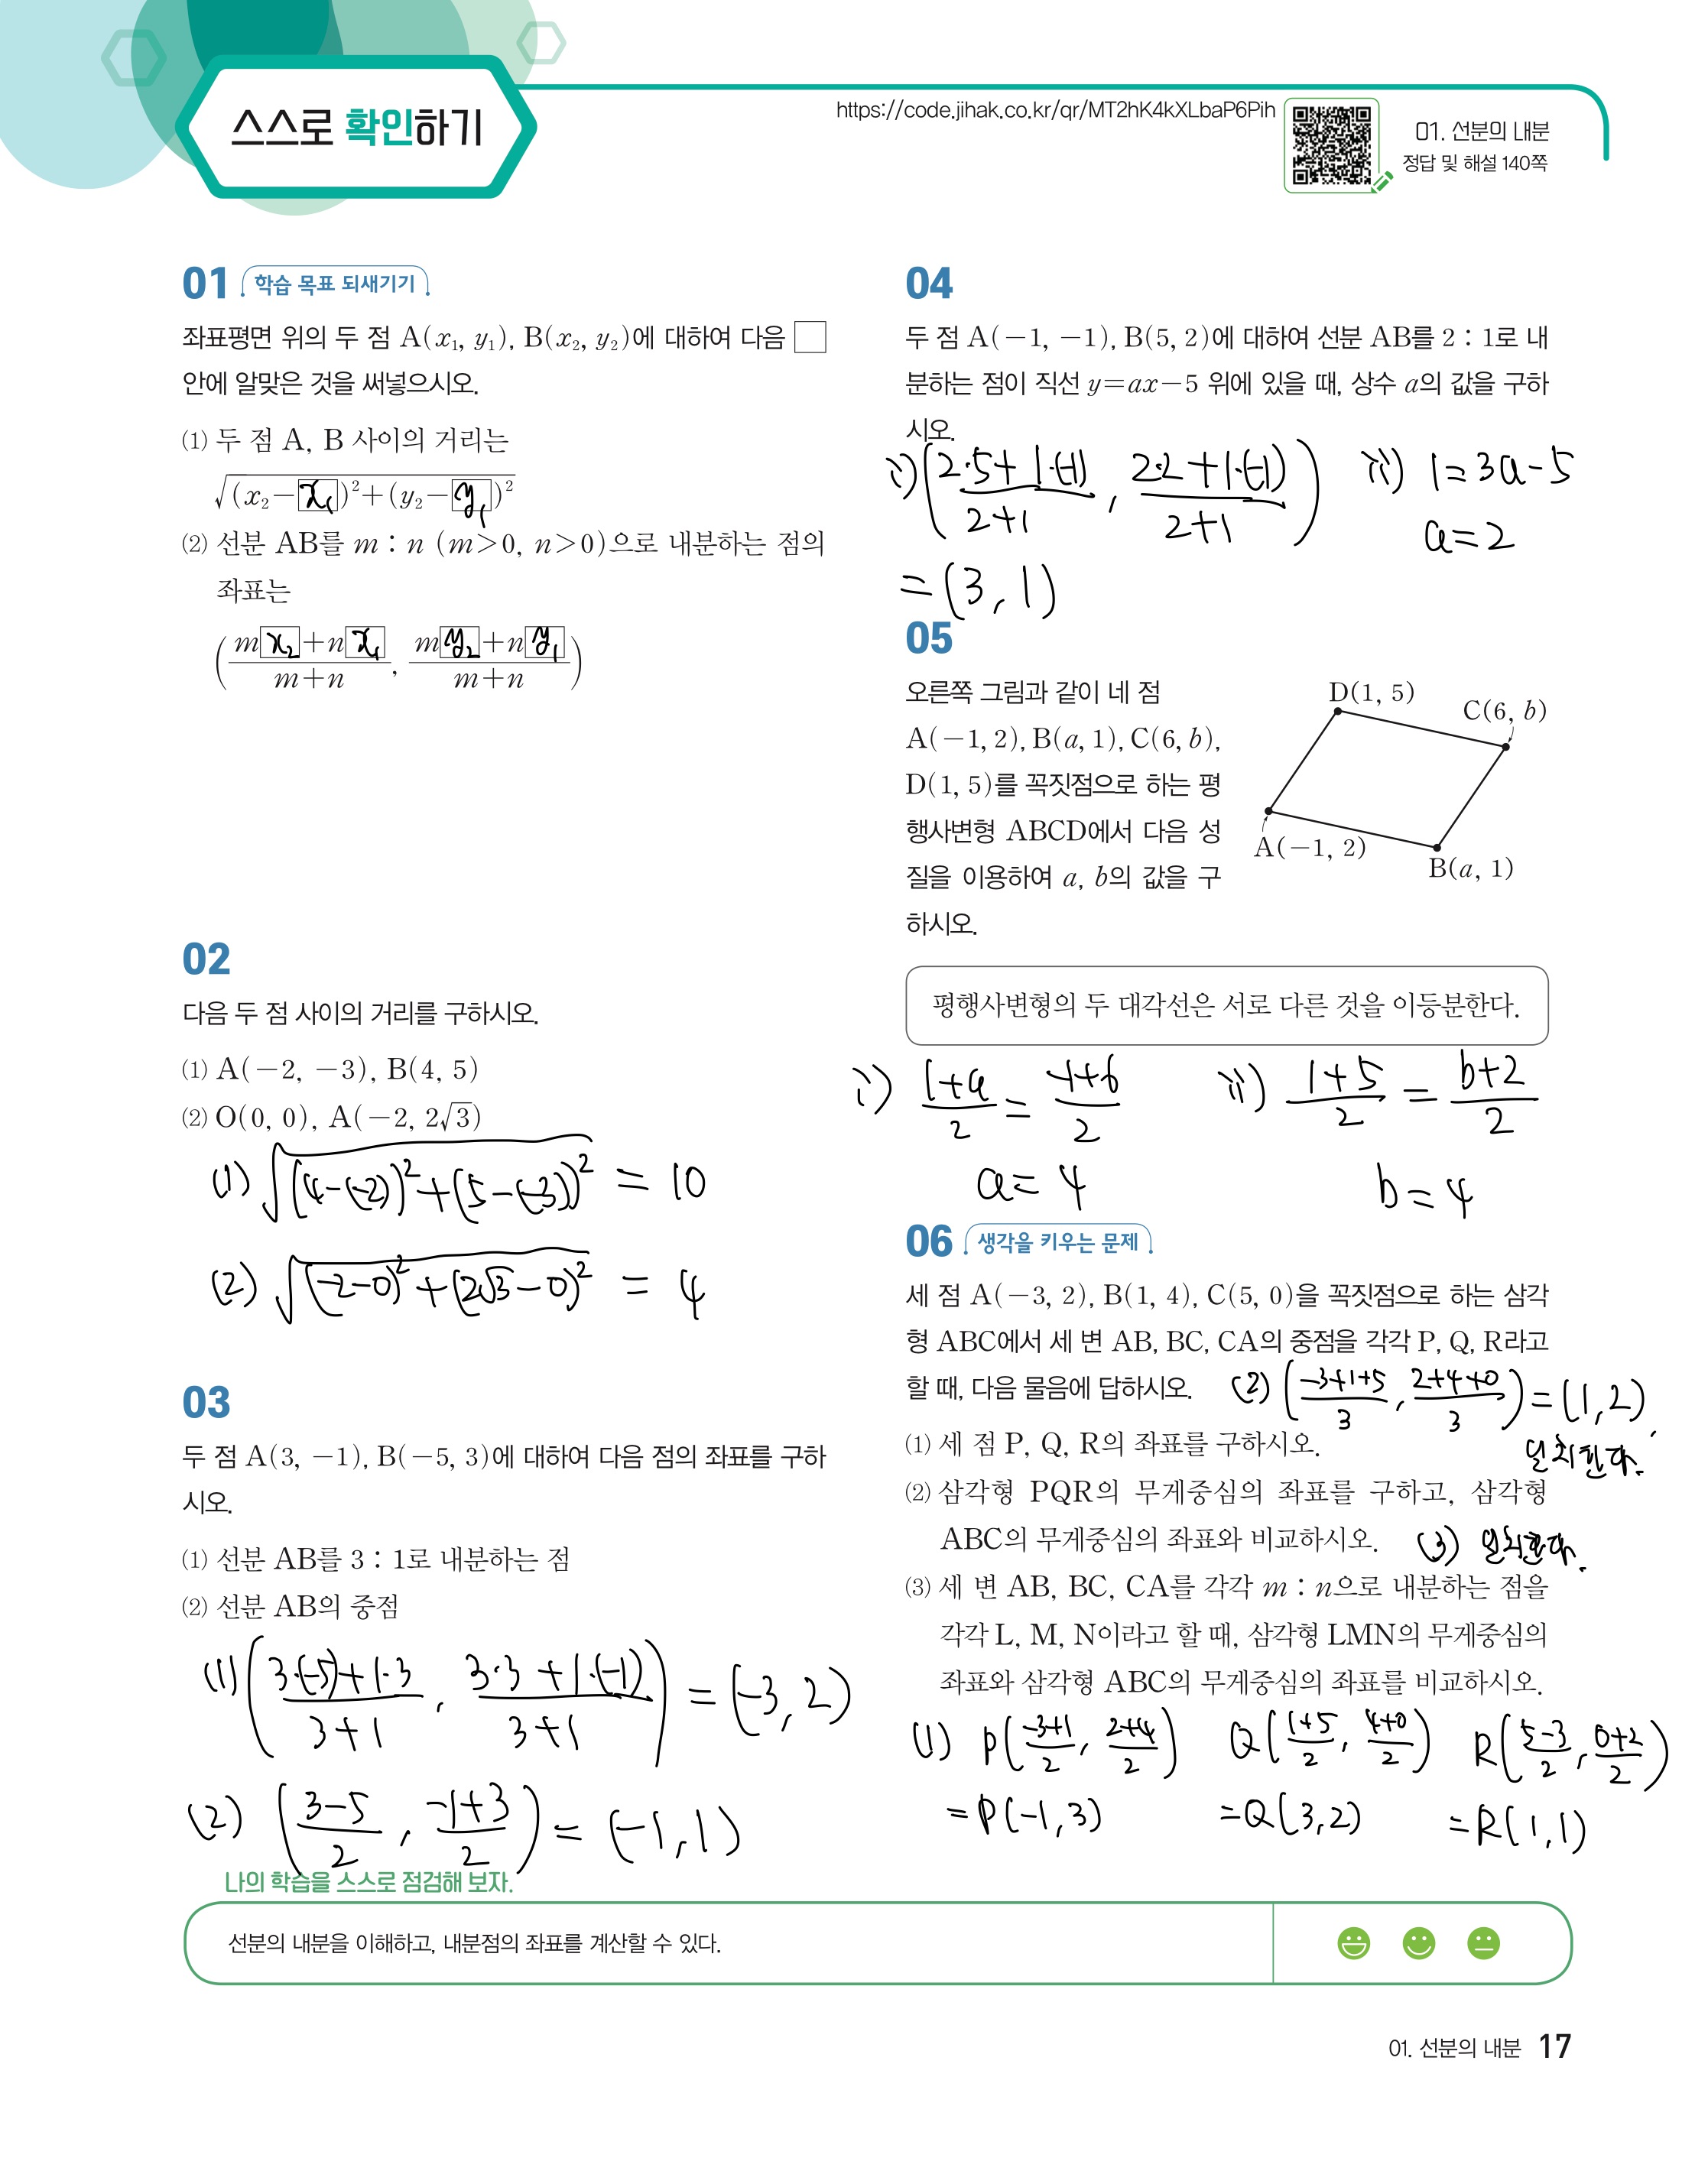 스스로 확인하기
https://code.jihak.co.kr/qr/MT2hK4kXLbaP6Pih
01. 선분의 내분
정답 및 해설 140쪽
01 학습 목표 되새기기
좌표평면 위의 두 점 A(x₁, y₁), B(x₂, y₂)에 대하여 다음 □
안에 알맞은 것을 써넣으시오.
⑴ 두 점 A, B 사이의 거리는
√((x₂−x₁)²+(y₂−y₁)²)
⑵ 선분 AB를 m : n (m>0, n>0)으로 내분하는 점의
좌표는
((mx₂+nx₁)/(m+n), (my₂+ny₁)/(m+n))
02
다음 두 점 사이의 거리를 구하시오.
⑴ A(−2, −3), B(4, 5)
⑵ O(0, 0), A(−2, 2√3)
(1) √((4-(-2))²+(5-(-3))²) = 10
(2) √((-2-0)²+(2√3-0)²) = 4
03
두 점 A(3, −1), B(−5, 3)에 대하여 다음 점의 좌표를 구하
시오.
⑴ 선분 AB를 3 : 1로 내분하는 점
⑵ 선분 AB의 중점
(1) ((3·(-5)+1·3)/(3+1), (3·3+1·(-1))/(3+1)) = (-3, 2)
(2) ((3-5)/2, (-1+3)/2) = (-1, 1)
04
두 점 A(−1, −1), B(5, 2)에 대하여 선분 AB를 2 : 1로 내
분하는 점이 직선 y=ax−5 위에 있을 때, 상수 a의 값을 구하
시오.
i) ((2·5+1·(-1))/(2+1), (2·2+1·(-1))/(2+1))
= (3, 1)
ii) 1=3a-5
a=2
05
오른쪽 그림과 같이 네 점
A(−1, 2), B(a, 1), C(6, b),
D(1, 5)를 꼭짓점으로 하는 평
행사변형 ABCD에서 다음 성
질을 이용하여 a, b의 값을 구
하시오.
D(1, 5)
C(6, b)
A(−1, 2)
B(a, 1)
평행사변형의 두 대각선은 서로 다른 것을 이등분한다.
i) (1+a)/2 = (-1+6)/2
a=4
ii) (1+5)/2 = (b+2)/2
b=4
06 생각을 키우는 문제
세 점 A(−3, 2), B(1, 4), C(5, 0)을 꼭짓점으로 하는 삼각
형 ABC에서 세 변 AB, BC, CA의 중점을 각각 P, Q, R라고
할 때, 다음 물음에 답하시오.
(2) ((-3+1+5)/3, (2+4+0)/3) = (1, 2)
일치한다.
⑴ 세 점 P, Q, R의 좌표를 구하시오.
⑵ 삼각형 PQR의 무게중심의 좌표를 구하고, 삼각형
ABC의 무게중심의 좌표와 비교하시오.
(3) 일치한다.
⑶ 세 변 AB, BC, CA를 각각 m : n으로 내분하는 점을
각각 L, M, N이라고 할 때, 삼각형 LMN의 무게중심의
좌표와 삼각형 ABC의 무게중심의 좌표를 비교하시오.
(1) P((-3+1)/2, (2+4)/2) Q((1+5)/2, (4+0)/2) R((5-3)/2, (0+2)/2)
=P(-1, 3) =Q(3, 2) =R(1, 1)
나의 학습을 스스로 점검해 보자.
선분의 내분을 이해하고, 내분점의 좌표를 계산할 수 있다.
01. 선분의 내분 17